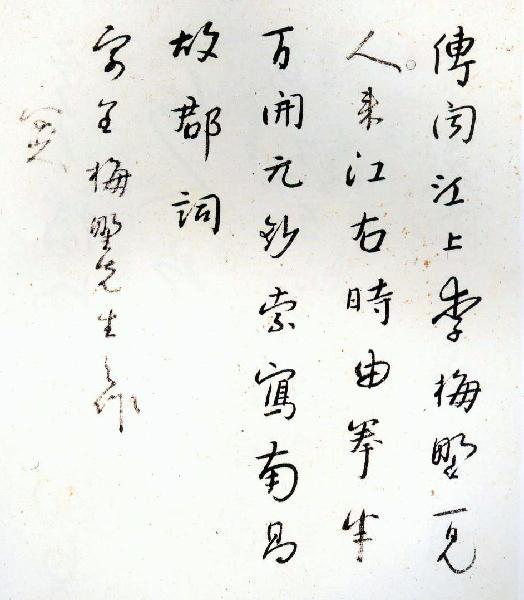 傳聞江上李梅野一見
人来江右時由拳半
百開元鈔索寫南昌
故郡詞
寄呈梅野先生之作